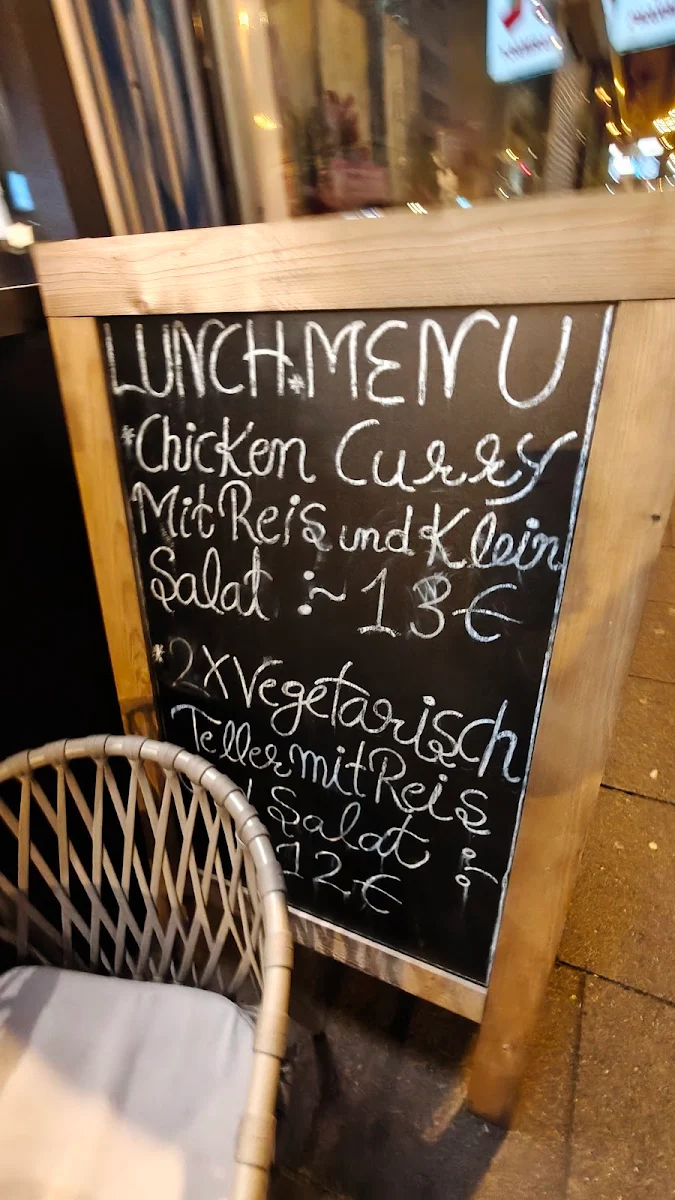 LUNCH*MENU
*Chicken Curry
Mit Reis und Klein
Salat :~ 13€
*2X Vegetarisch
Teller mit Reis
Salat :~
12€